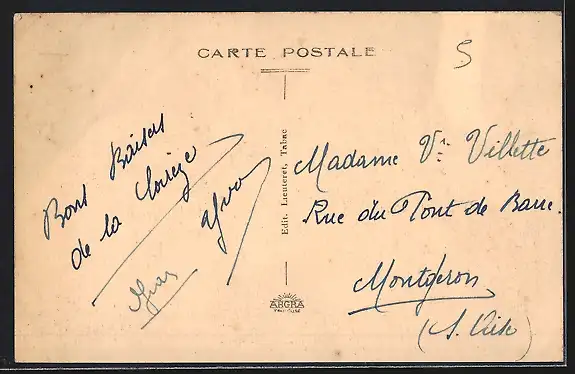 CARTE POSTALE
5
Bons Baisers
de la Corrèze
Yvo
Edit. Lieuteret, Tabac
ARGRA
Madame Vve Villette
Rue du Pont de Barre.
Montgeron
(S. Oise)